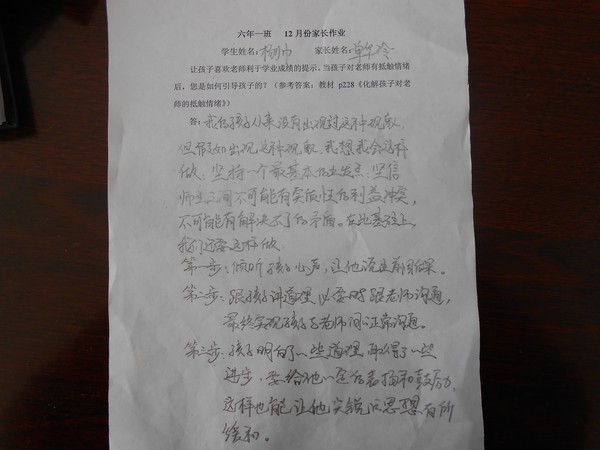 六年一班 12月份家长作业
学生姓名：杨 家长姓名：单
让孩子喜欢老师利于学业成绩的提示。当孩子对老师有抵触情绪
后，您是如何引导孩子的？（参考答案：教材 p228《化解孩子对老
师的抵触情绪》）
答：我的孩子从来没有出现过这种现象，
但假如出现这种现象，我想我会这样
做：坚持一个最基本的出发点：坚信
师生之间不可能有实质性的利益冲突，
不可能有解决不了的矛盾。在此基础上，
我们还要这样做
第一步：倾听孩子心声，让他说出前因后果。
第二步：跟孩子讲道理，必要时跟老师沟通，
最终实现孩子与老师间正常沟通。
第三步：孩子明白了一些道理，取得了一些
进步，要给他一定的表扬和鼓励，
这样也能让他 思想有所
缓和。